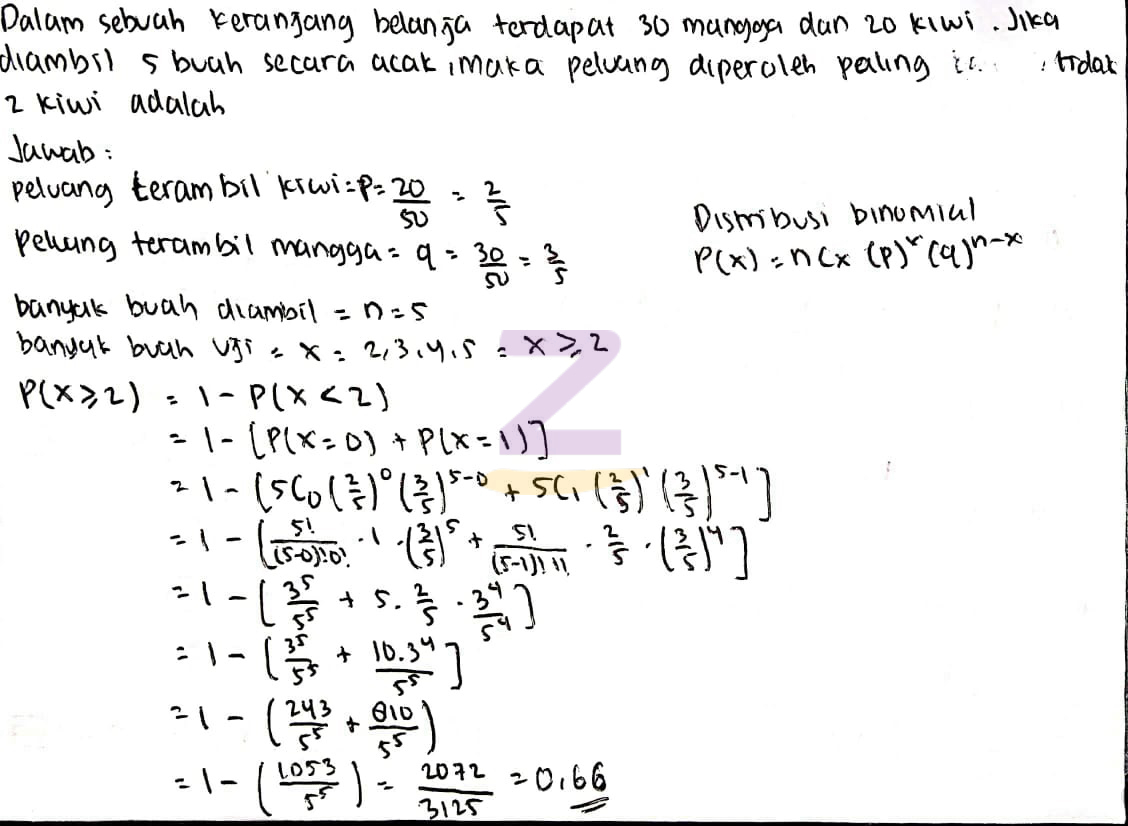 Dalam sebuah keranjang belanja terdapat 30 mangga dan 20 kiwi. Jika
diambil 5 buah secara acak, maka peluang diperoleh paling tidak
2 kiwi adalah
Jawab :
peluang terambil kiwi = p = 20/50 = 2/5
Peluang terambil mangga = q = 30/50 = 3/5
Distribusi binomial
P(x) = nCx (p)ˣ (q)ⁿ⁻ˣ
banyak buah diambil = n = 5
banyak buah uji = x = 2,3,4,5 = x ≥ 2
P(x ≥ 2) = 1 - P(x < 2)
= 1 - [P(x = 0) + P(x = 1)]
= 1 - [5C₀ (2/5)⁰ (3/5)⁵⁻⁰ + 5C₁ (2/5)¹ (3/5)⁵⁻¹]
= 1 - [5!/(5-0)!0! · 1 · (3/5)⁵ + 5!/(5-1)!1! · 2/5 · (3/5)⁴]
= 1 - [3⁵/5⁵ + 5 · 2/5 · 3⁴/5⁴]
= 1 - [3⁵/5⁵ + 10.3⁴/5⁵]
= 1 - (243/5⁵ + 810/5⁵)
= 1 - (1.053/5⁵) = 2072/3125 = 0,66
Z